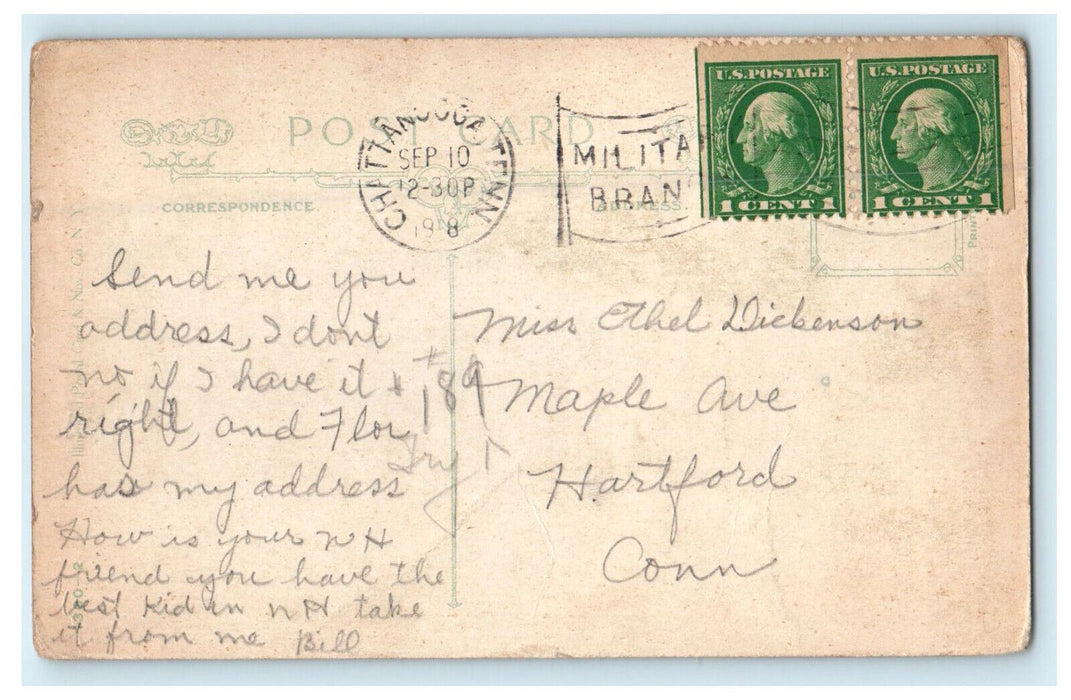 POST CARD
CHATTANOOGA, TENN
SEP 10
12-30P
1918
MILITA
BRAN
U.S. POSTAGE
1 CENT 1
U.S. POSTAGE
1 CENT 1
CORRESPONDENCE.
ADDRESS
Send me you
address, I dont
no if I have it
right, and Flor
has my address
How is your NH
friend you have the
best kid in NH take
it from me Bill
Miss Ethel Dickenson
#189 Maple Ave
Hartford
Conn